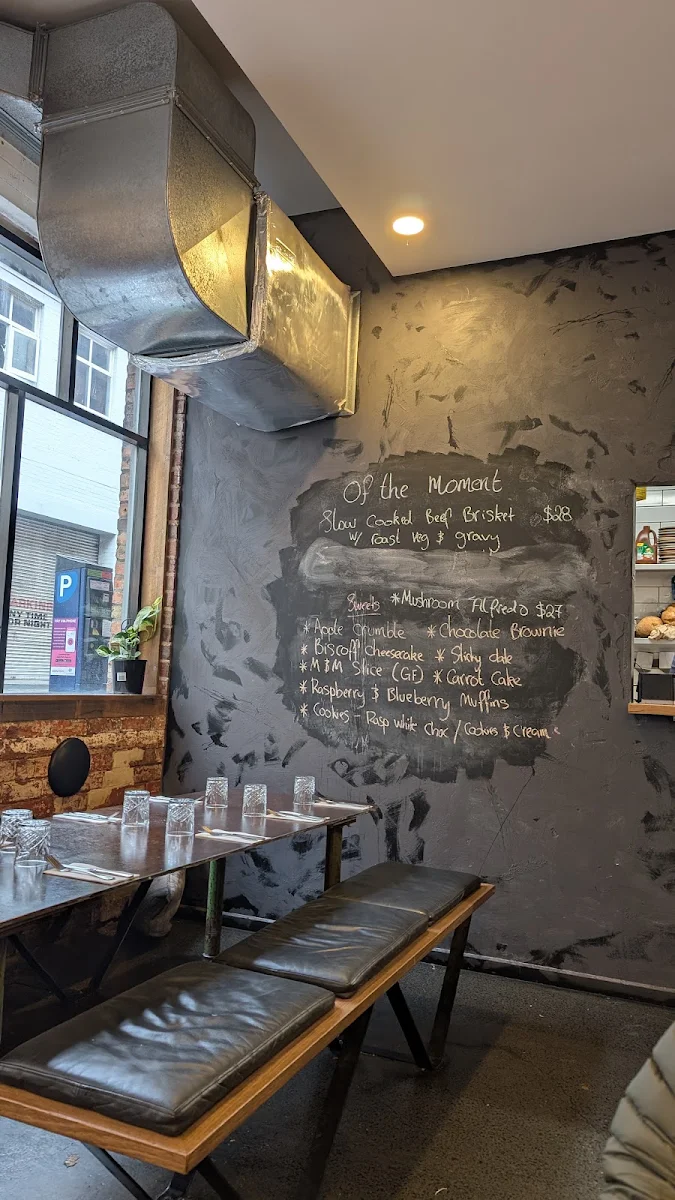 Of the Moment
Slow Cooked Beef Brisket $28
w/ roast veg & gravy
Sweets *Mushroom Alfredo $27
*Apple Crumble *Chocolate Brownie
*Biscoff cheesecake *Sticky date
*M&M Slice (GF) *Carrot Cake
*Raspberry & Blueberry Muffins
*Cookies - Rasp white choc / Cookies & Cream
P
NY TIME
OR NIGHT